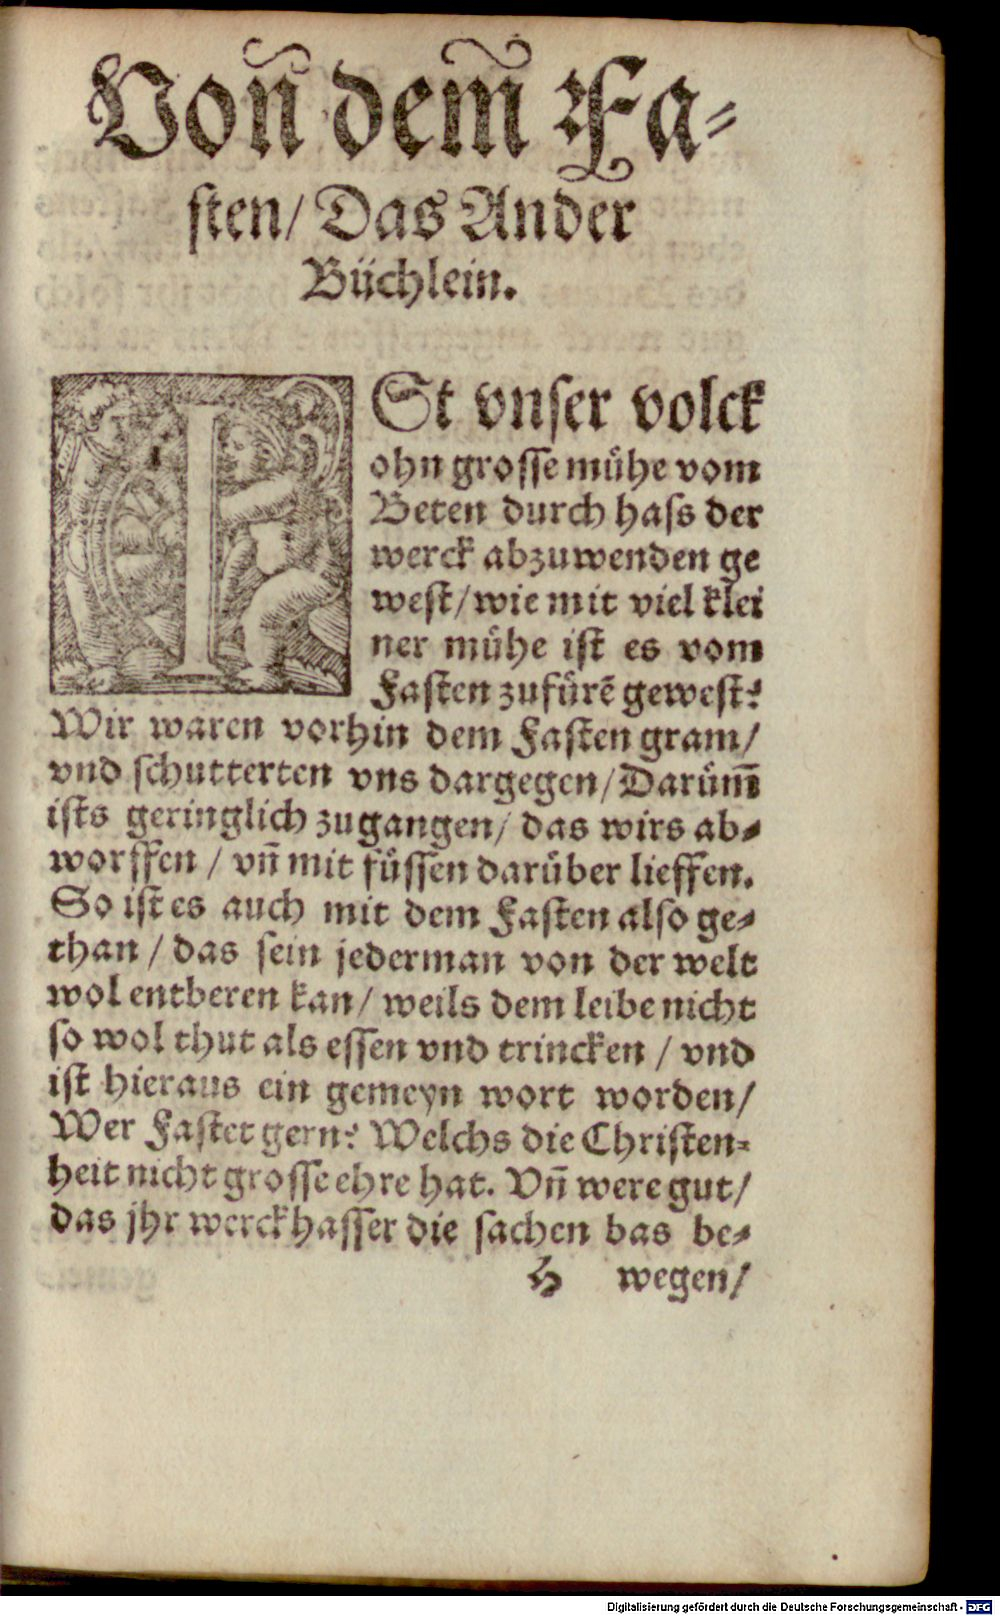 Von dem Fa⸗
sten/ Das Ander
Büchlein.
ISt vnser volck
ohn grosse mühe vom
Beten durch hass der
werck abzuwenden ge
west/ wie mit viel klei
ner mühe ist es vom
Fasten zufürē gewest?
Wir waren vorhin dem Fasten gram/
vnd schutterten vns dargegen/ Darüm̄
ists geringlich zugangen/ das wirs ab⸗
worffen / vn̄ mit füssen darüber lieffen.
So ist es auch mit dem Fasten also ge⸗
than / das sein jederman von der welt
wol entberen kan/ weils dem leibe nicht
so wol thut als essen vnd trincken / vnd
ist hieraus ein gemeyn wort worden/
Wer Fastet gern? Welchs die Christen⸗
heit nicht grosse ehre hat. Vn̄ were gut/
das jhr werckhasser die sachen bas be⸗
H wegen/
Digitalisierung gefördert durch die Deutsche Forschungsgemeinschaft - DFG